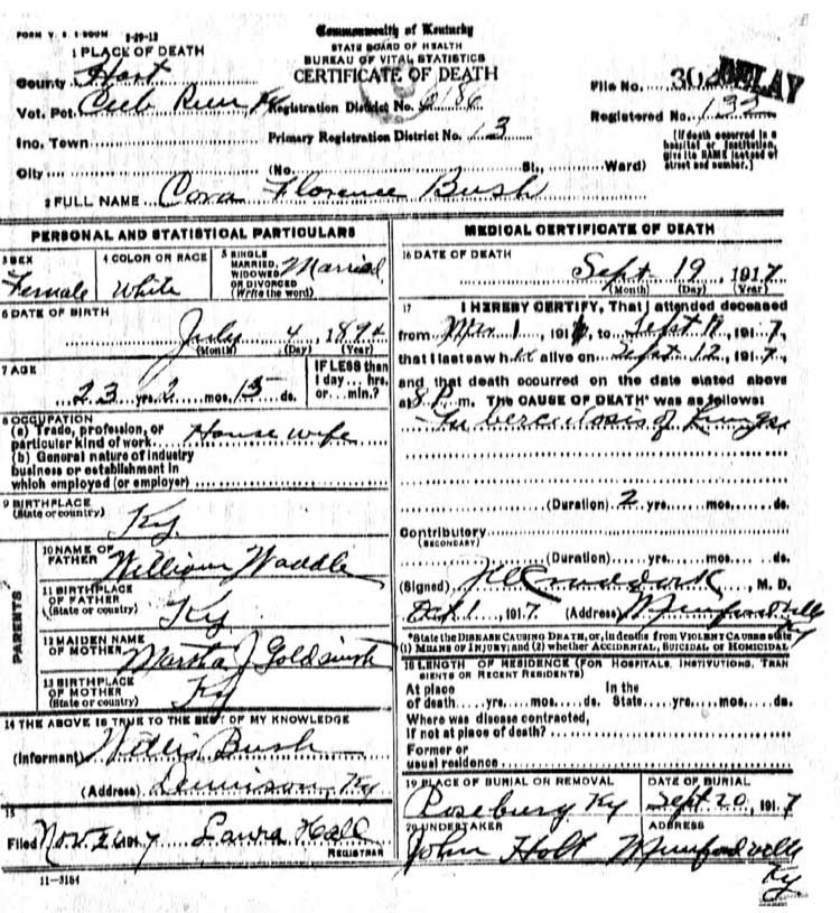 FORM V. S. 1-500M 3-29-12
Commonwealth of Kentucky
STATE BOARD OF HEALTH
BUREAU OF VITAL STATISTICS
CERTIFICATE OF DEATH
1 PLACE OF DEATH
County Hart
Vot. Pct. Cub Run Ky
Ino. Town
City (No. St., Ward)
Registration District No.
Primary Registration District No. 13
File No. 30
DELAY
Registered No. 133
[If death occurred in a hospital or institution, give its NAME instead of street and number.]
2 FULL NAME Cora Florence Bush
PERSONAL AND STATISTICAL PARTICULARS
3 SEX Female
4 COLOR OR RACE White
5 SINGLE MARRIED, WIDOWED OR DIVORCED (Write the word) Married
6 DATE OF BIRTH
July 4, 1894
(Month) (Day) (Year)
7 AGE
23 yrs. 2 mos. 15 ds.
IF LESS than 1 day... hrs. or... min.?
8 OCCUPATION
(a) Trade, profession, or particular kind of work House wife
(b) General nature of industry business or establishment in which employed (or employer)
9 BIRTHPLACE (State or country) Ky.
PARENTS
10 NAME OF FATHER William Waddle
11 BIRTHPLACE OF FATHER (State or country) Ky.
12 MAIDEN NAME OF MOTHER Martha J Goldsmith
13 BIRTHPLACE OF MOTHER (State or country) Ky
14 THE ABOVE IS TRUE TO THE BEST OF MY KNOWLEDGE
(Informant) Willis Bush
(Address) Dennison, Ky
15
Filed Nov. 1917 Laura Hall
REGISTRAR
11-3184
MEDICAL CERTIFICATE OF DEATH
16 DATE OF DEATH
Sept 19, 1917
(Month) (Day) (Year)
17 I HEREBY CERTIFY, That I attended deceased
from Mar 1, 191, to Sept, 1917,
that I last saw h alive on Sept 12, 1917,
and that death occurred on the date stated above
at 8 P. m. The CAUSE OF DEATH* was as follows:
Tuberculosis of Lungs
(Duration) 2 yrs. mos. ds.
Contributory
(SECONDARY)
(Duration) yrs. mos. ds.
(Signed) Craddock, M. D.
Oct 1, 1917 (Address) Munfordville Ky
*State the DISEASE CAUSING DEATH, or, in deaths from VIOLENT CAUSES state
(1) MEANS OF INJURY; and (2) whether ACCIDENTAL, SUICIDAL or HOMICIDAL
18 LENGTH OF RESIDENCE (FOR HOSPITALS, INSTITUTIONS, TRAN
SIENTS OR RECENT RESIDENTS)
At place of death yrs. mos. ds. In the State yrs. mos. ds.
Where was disease contracted,
If not at place of death?
Former or
usual residence
19 PLACE OF BURIAL OR REMOVAL
Roseburg Ky
DATE OF BURIAL
Sept 20, 1917
20 UNDERTAKER
John Holt
ADDRESS
Munfordville
Ky.